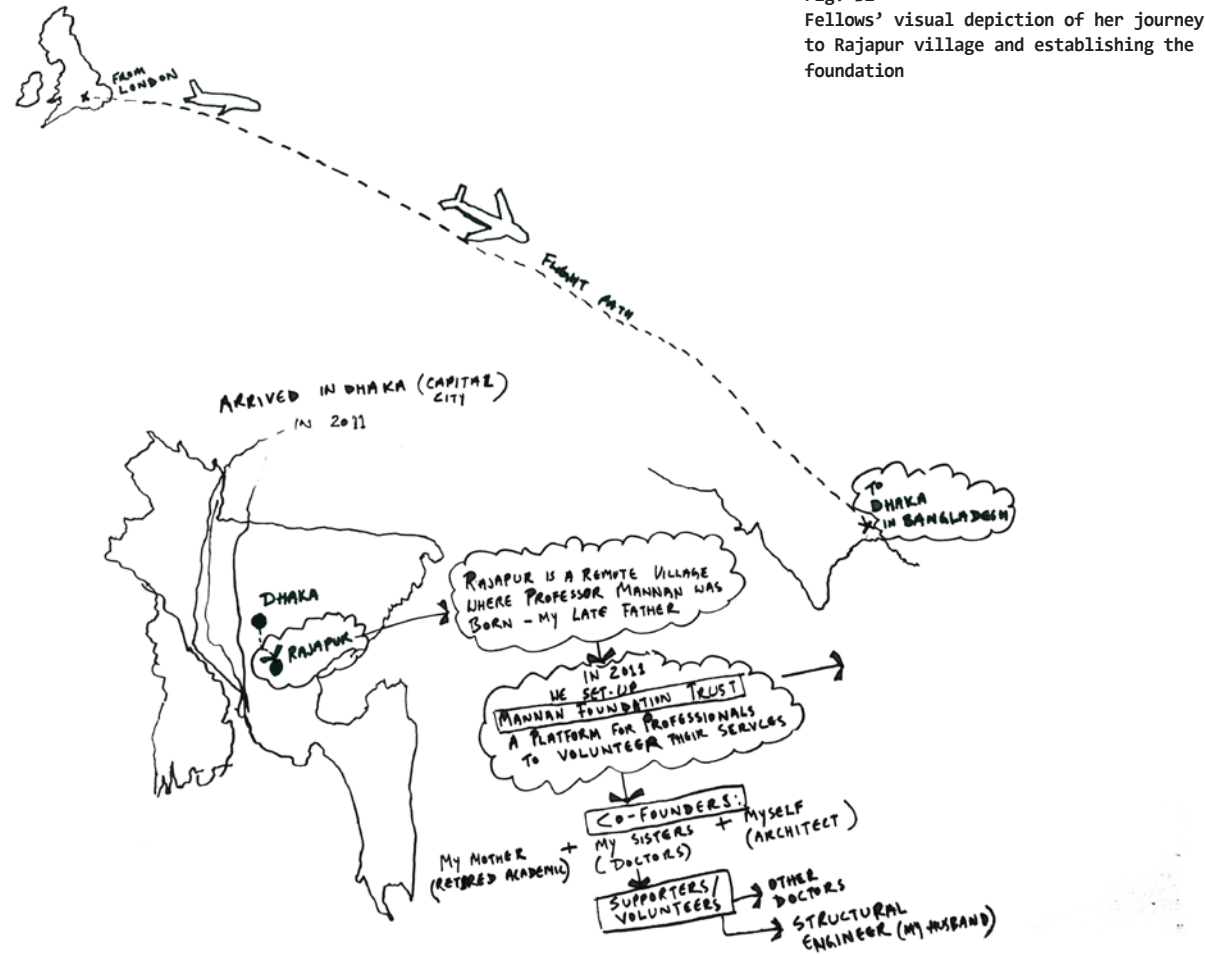 Fellows’ visual depiction of her journey
to Rajapur village and establishing the
foundation
FROM
LONDON
FLIGHT PATH
TO
DHAKA
IN BANGLADESH
ARRIVED IN DHAKA (CAPITAL
CITY)
IN 2011
DHAKA
RAJAPUR
RAJAPUR IS A REMOTE VILLAGE
WHERE PROFESSOR MANNAN WAS
BORN – MY LATE FATHER
IN 2011
WE SET-UP
MANNAN FOUNDATION TRUST
A PLATFORM FOR PROFESSIONALS
TO VOLUNTEER THEIR SERVCES
CO-FOUNDERS:
MY MOTHER
(RETIRED ACADEMIC)
+
MY SISTERS
(DOCTORS)
+
MYSELF
(ARCHITECT)
SUPPORTERS/
VOLUNTEERS
OTHER
DOCTORS
STRUCTURAL
ENGINEER (MY HUSBAND)